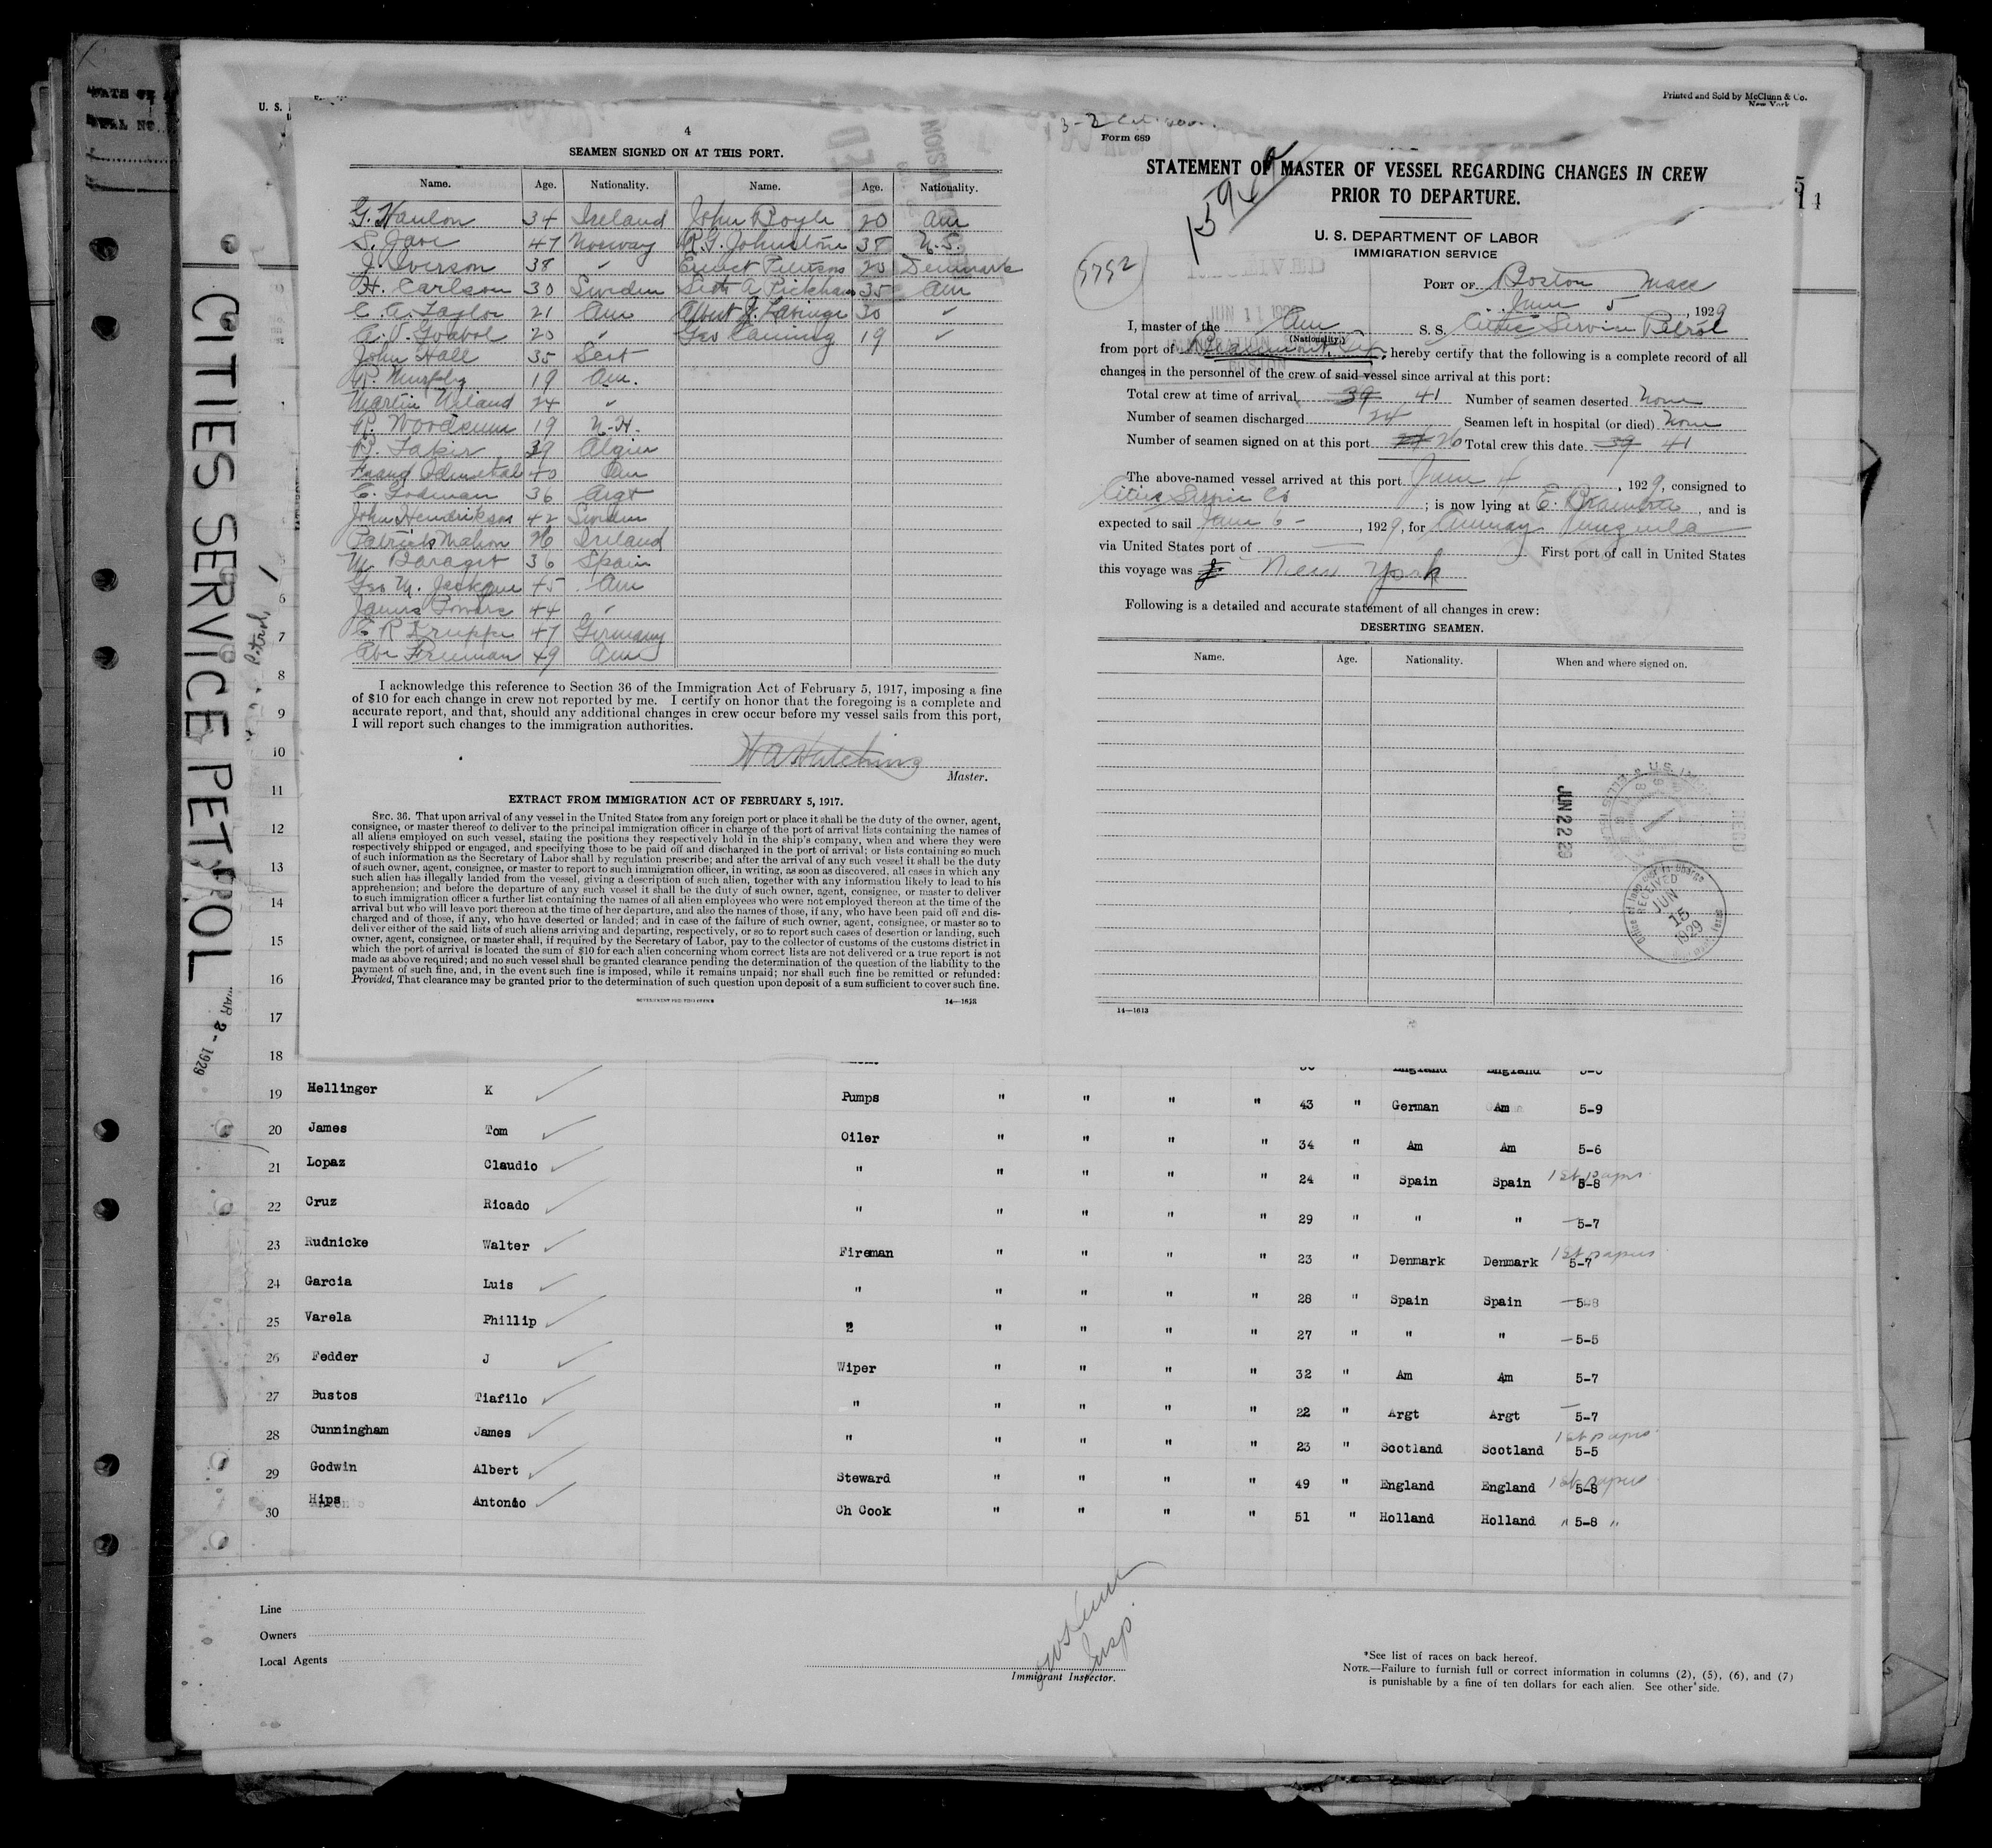 CITIES SERVICE PETROL
MAR 2 - 1929
Petrol
U. S.
Printed and Sold by McClunn & Co.
New York
4
SEAMEN SIGNED ON AT THIS PORT.
Name. Age. Nationality. Name. Age. Nationality.
G. Hanlon 34 Ireland John Boyle 20 Am
47 Norway R. G. Johnstone 38 U.S.
J. Iverson 38 " 20 Denmark
H. Carlson 30 Sweden 35 Am
C. A. Taylor 21 Am Albert J. 30 "
20 " Geo 19 "
John Hall 35 Scot
R. Murphy 19 Am.
Martin 24 "
R. 19 N.H.
39 Algier
40 Am
C. Godman 36 Argt
John Hendrikson 42 Sweden
Patrick Mahon 26 Ireland
M. 36 Spain
Geo M. 45 Am
James 44 "
C R 47 Germany
Abe Freeman 49 Am
I acknowledge this reference to Section 36 of the Immigration Act of February 5, 1917, imposing a fine
of $10 for each change in crew not reported by me. I certify on honor that the foregoing is a complete and
accurate report, and that, should any additional changes in crew occur before my vessel sails from this port,
I will report such changes to the immigration authorities.
Master.
EXTRACT FROM IMMIGRATION ACT OF FEBRUARY 5, 1917.
SEC. 36. That upon arrival of any vessel in the United States from any foreign port or place it shall be the duty of the owner, agent,
consignee, or master thereof to deliver to the principal immigration officer in charge of the port of arrival lists containing the names of
all aliens employed on such vessel, stating the positions they respectively hold in the ship's company, when and where they were
respectively shipped or engaged, and specifying those to be paid off and discharged in the port of arrival; or lists containing so much
of such information as the Secretary of Labor shall by regulation prescribe; and after the arrival of any such vessel it shall be the duty
of such owner, agent, consignee, or master to report to such immigration officer, in writing, as soon as discovered, all cases in which any
such alien has illegally landed from the vessel, giving a description of such alien, together with any information likely to lead to his
apprehension; and before the departure of any such vessel it shall be the duty of such owner, agent, consignee, or master to deliver
to such immigration officer a further list containing the names of all alien employees who were not employed thereon at the time of the
arrival but who will leave port thereon at the time of her departure, and also the names of those, if any, who have been paid off and dis-
charged and of those, if any, who have deserted or landed; and in case of the failure of such owner, agent, consignee, or master so to
deliver either of the said lists of such aliens arriving and departing, respectively, or so to report such cases of desertion or landing, such
owner, agent, consignee, or master shall, if required by the Secretary of Labor, pay to the collector of customs of the customs district in
which the port of arrival is located the sum of $10 for each alien concerning whom correct lists are not delivered or a true report is not
made as above required; and no such vessel shall be granted clearance pending the determination of the question of the liability to the
payment of such fine, and, in the event such fine is imposed, while it remains unpaid; nor shall such fine be remitted or refunded:
Provided, That clearance may be granted prior to the determination of such question upon deposit of a sum sufficient to cover such fine.
GOVERNMENT PRINTING OFFICE 14—1613
Form 689
STATEMENT OF MASTER OF VESSEL REGARDING CHANGES IN CREW
PRIOR TO DEPARTURE.
U. S. DEPARTMENT OF LABOR
IMMIGRATION SERVICE
5752
PORT OF Boston Mass
June 5, 1929
I, master of the Am S. S. Cities Service Petrol
(Nationality.)
from port of Beaumont, Tex, hereby certify that the following is a complete record of all
changes in the personnel of the crew of said vessel since arrival at this port:
Total crew at time of arrival 39 41 Number of seamen deserted None
Number of seamen discharged 24 Seamen left in hospital (or died) None
Number of seamen signed on at this port 24 26 Total crew this date 39 41
The above-named vessel arrived at this port June 4, 1929, consigned to
Cities Service Co; is now lying at E. Braintree, and is
expected to sail June 6 -, 1929, for
via United States port of — First port of call in United States
this voyage was New York
Following is a detailed and accurate statement of all changes in crew:
DESERTING SEAMEN.
Name. Age. Nationality. When and where signed on.
JUN 22 29
RECEIVED
JUN
15
1929
14—1613
5
14
6
7
8
9
10
11
12
13
14
15
16
17
18
19 Hellinger K Pumps " " " " 43 " German Am 5-9
20 James Tom Oiler " " " " 34 " Am Am 5-6
21 Lopaz Claudio " " " " " 24 " Spain Spain 1st papers 5-8
22 Cruz Ricado " " " " " 29 " " " 5-7
23 Rudnicke Walter Fireman " " " " 23 " Denmark Denmark 1st papers 5-7
24 Garcia Luis " " " " " 28 " Spain Spain 5-8
25 Varela Phillip " " " " " 27 " " " 5-5
26 Fedder J Wiper " " " " 32 " Am Am 5-7
27 Bustos Tiafilo " " " " " 22 " Argt Argt 5-7
28 Cunningham James " " " " " 23 " Scotland Scotland 1st papers 5-5
29 Godwin Albert Steward " " " " 49 " England England 1st papers 5-8
30 Hips Antonio Ch Cook " " " " 51 " Holland Holland " 5-8 "
Line
Owners
Local Agents
Insp.
Immigrant Inspector.
*See list of races on back hereof.
NOTE.—Failure to furnish full or correct information in columns (2), (5), (6), and (7)
is punishable by a fine of ten dollars for each alien. See other side.